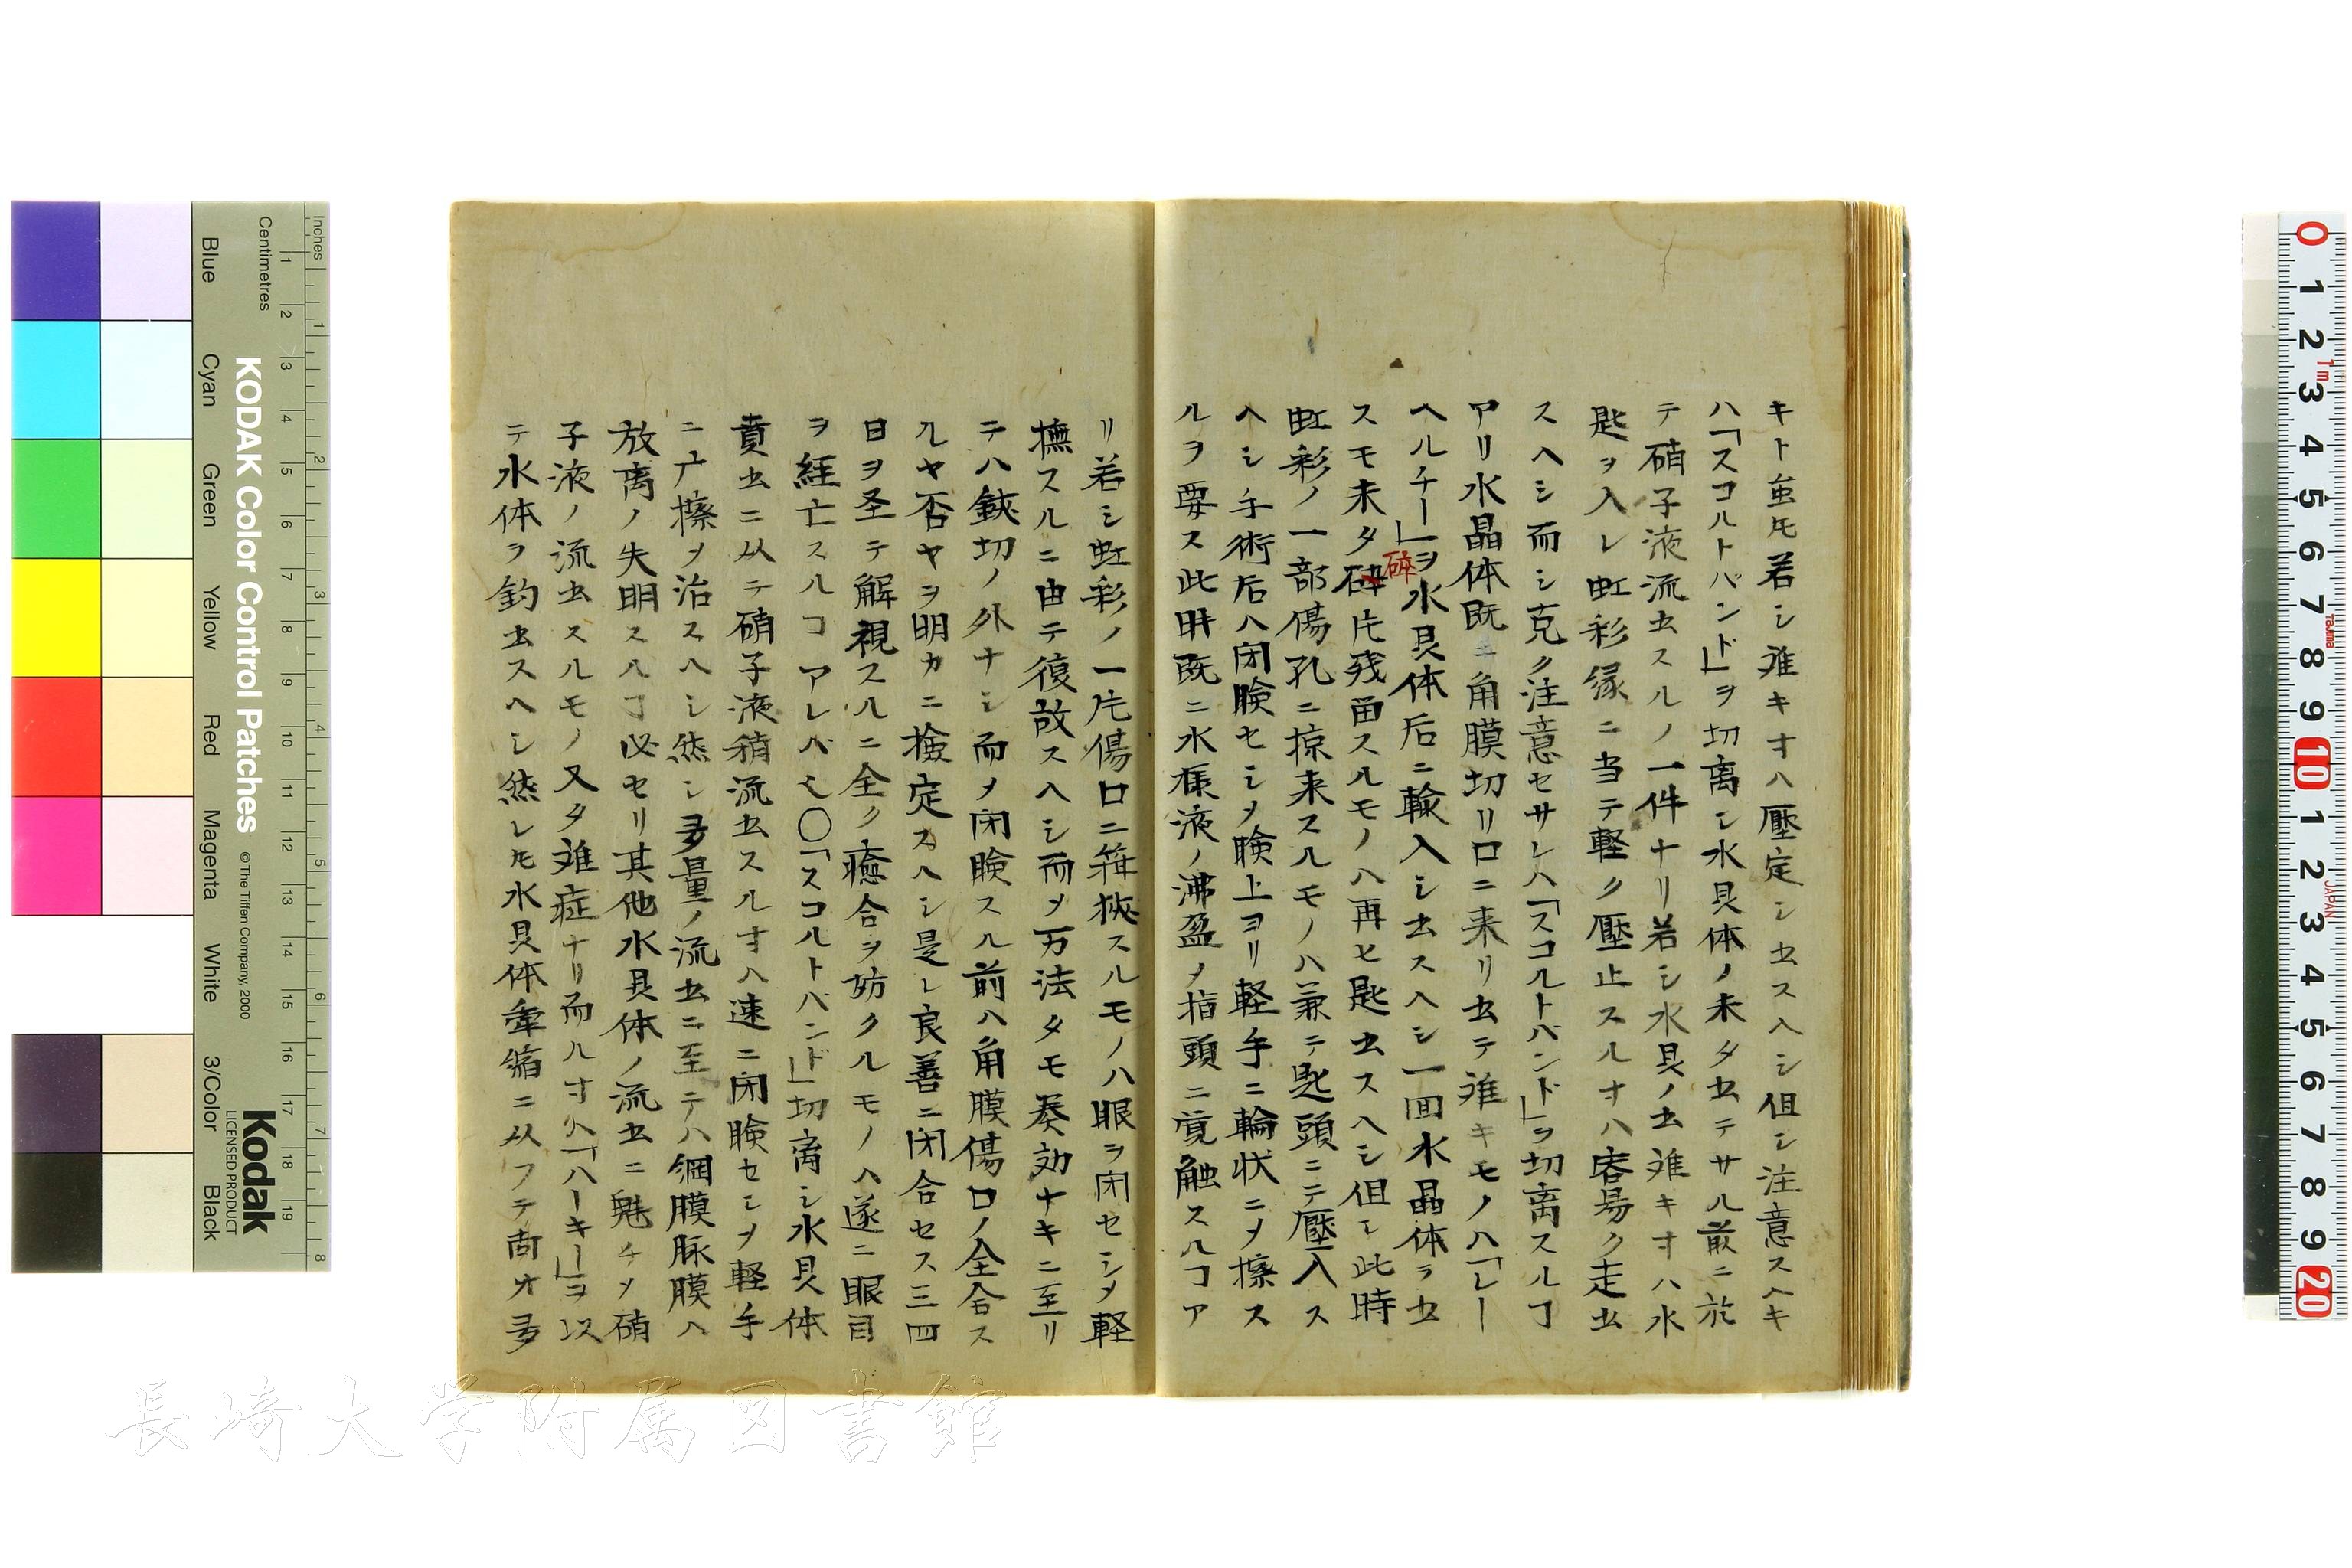 キト虽𪜈若シ難キオハ壓定シ出スヘシ但シ注意スヘキ
ハ「スコルトバンド」ヲ切离シ水具体ノ未タ出テサル前ニ於
テ硝子液流出スルノ一件ナリ若シ水具ノ出難キオハ水
匙ヲ入レ虹彩縁ニ当テ軽ク壓止スルオハ容易ク走出
スヘシ而シ克ク注意セサレハ「スコルトバンド」ヲ切离スルヿ
アリ水晶体既ニ角膜切リ口ニ来リ出テ難キモノハ「レー
ヘルチー」ヲ水具体后ニ輸入シ出スヘシ一回水晶体ヲ出
スモ未タ砕片残畄スルモノハ再ヒ匙出スヘシ但シ此時
碎
虹彩ノ一部傷孔ニ掠来スルモノハ兼テ匙頭ニテ壓入ス
ヘシ手術后ハ閉瞼セシメ瞼上ヨリ軽手ニ輪状ニメ擦ス
ルヲ要ス此時既ニ水様液ノ沸盈メ指頭ニ覚触スルヿア
リ若シ虹彩ノ一片傷口ニ箝挾スルモノハ眼ヲ閉セシメ軽
撫スルニ由テ復故スヘシ而メ万法タモ奏効ナキニ至リ
テハ鋏切ノ外ナシ而メ閉瞼スル前ハ角膜傷口ノ全合ス
ルヤ否ヤヲ明カニ撿定スヘシ是レ良善ニ閉合セス三四
日ヲ圣テ解視スルニ全ク癒合ヲ妨クルモノハ遂ニ眼目
ヲ経亡スルコアレバ也〇「スコルトバンド」切离シ水具体
賁出ニ从テ硝子液稍流出スルオハ速ニ閉瞼セシメ軽手
ニ擦ヲ治スヘシ然シ多量ノ流出ニ至テハ網膜脉膜ハ
放离ノ失明スルヿ必セリ其他水具体ノ流出ニ魁チメ硝
子液ノ流出スルモノ又タ難症ナリ而ルオハ「ハーキー」ヲ以
テ水体ヲ釣出スヘシ然レ𪜈水具体牽縮ニ从フテ尚オ多
KODAK Color Control Patches
© The Tiffen Company, 2000
Kodak
LICENSED PRODUCT
Inches
Centimetres
Blue
Cyan
Green
Yellow
Red
Magenta
White
3/Color
Black
長崎大学附属図書館